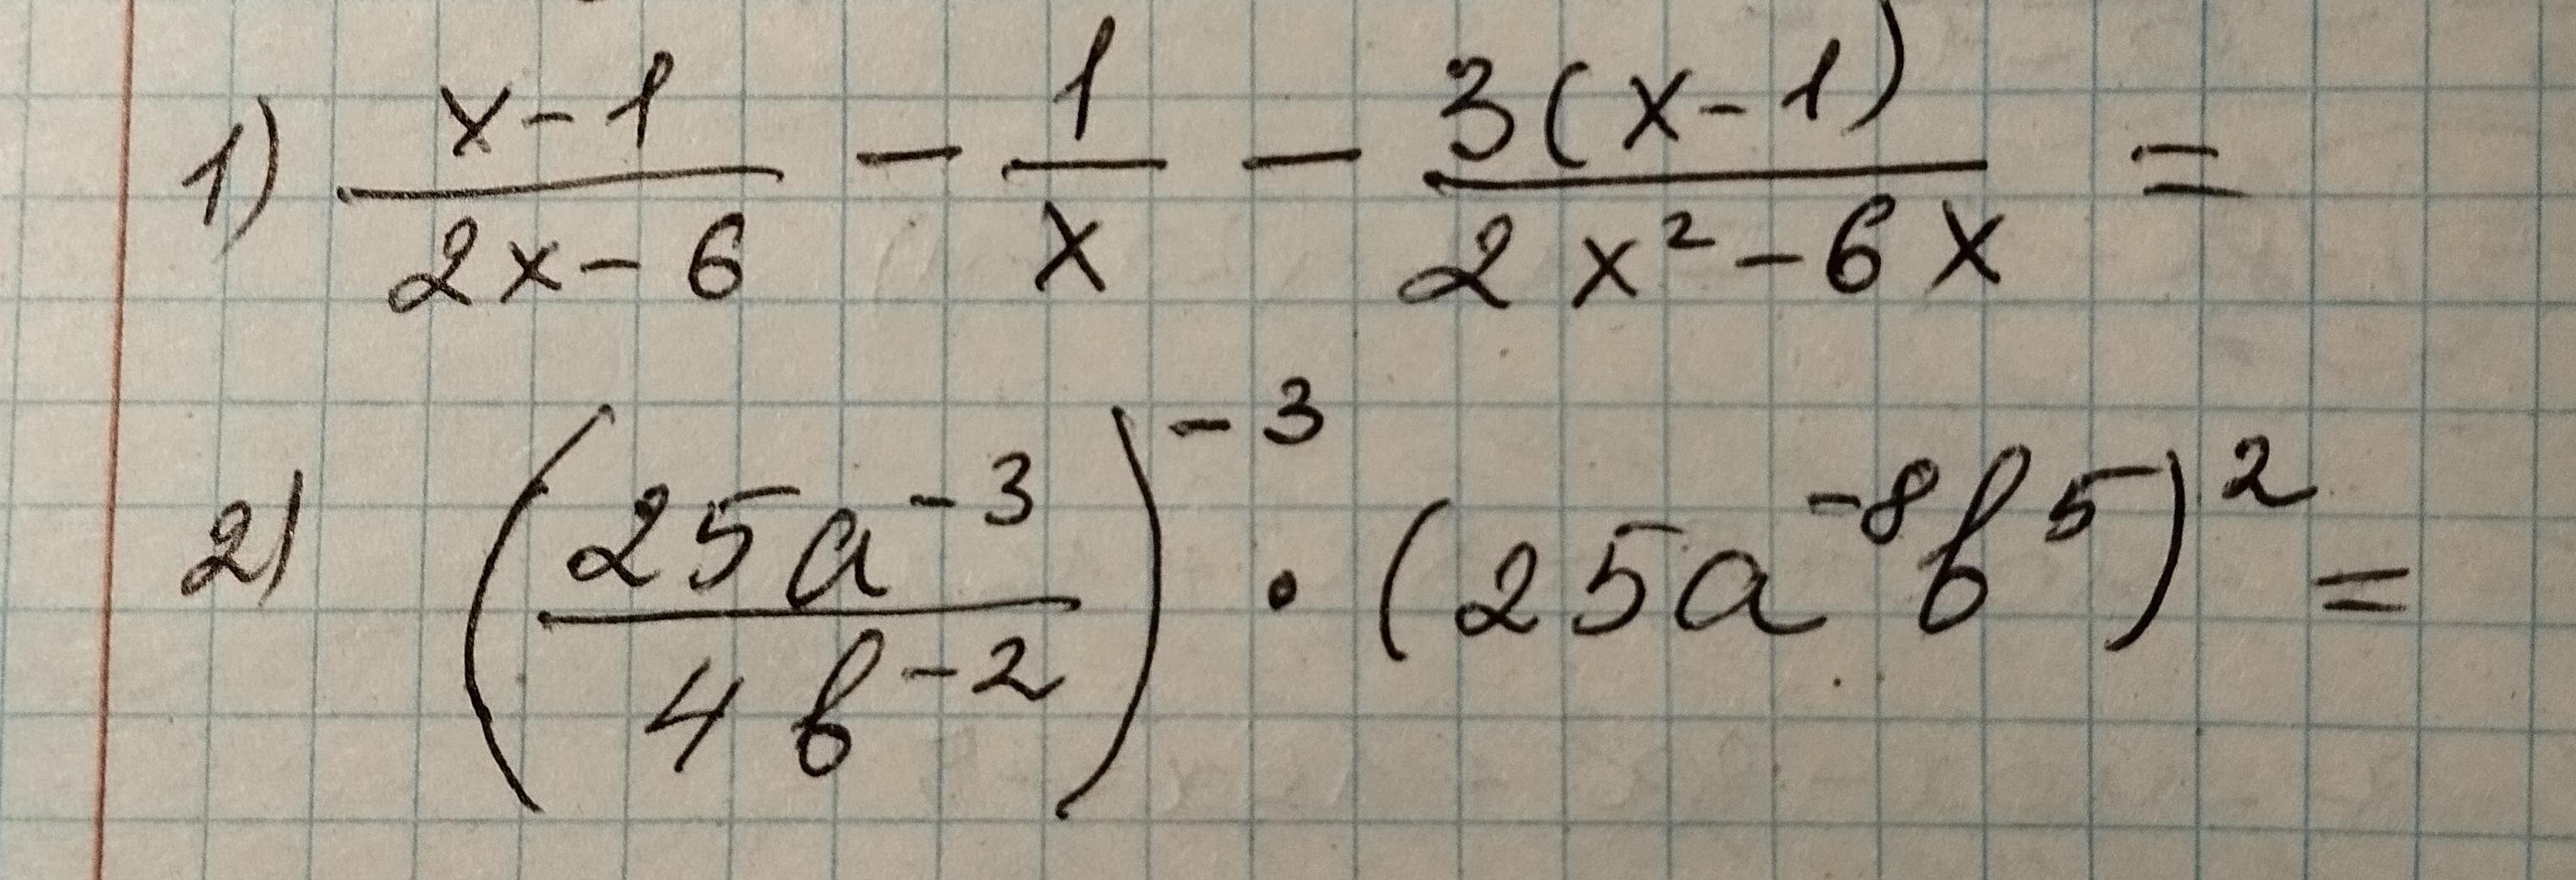 1) \frac{x-1}{2x-6} - \frac{1}{x} - \frac{3(x-1)}{2x^2-6x} =
2) \left(\frac{25a^{-3}}{4b^{-2}}\right)^{-3} \cdot (25a^{-8}b^5)^2 =